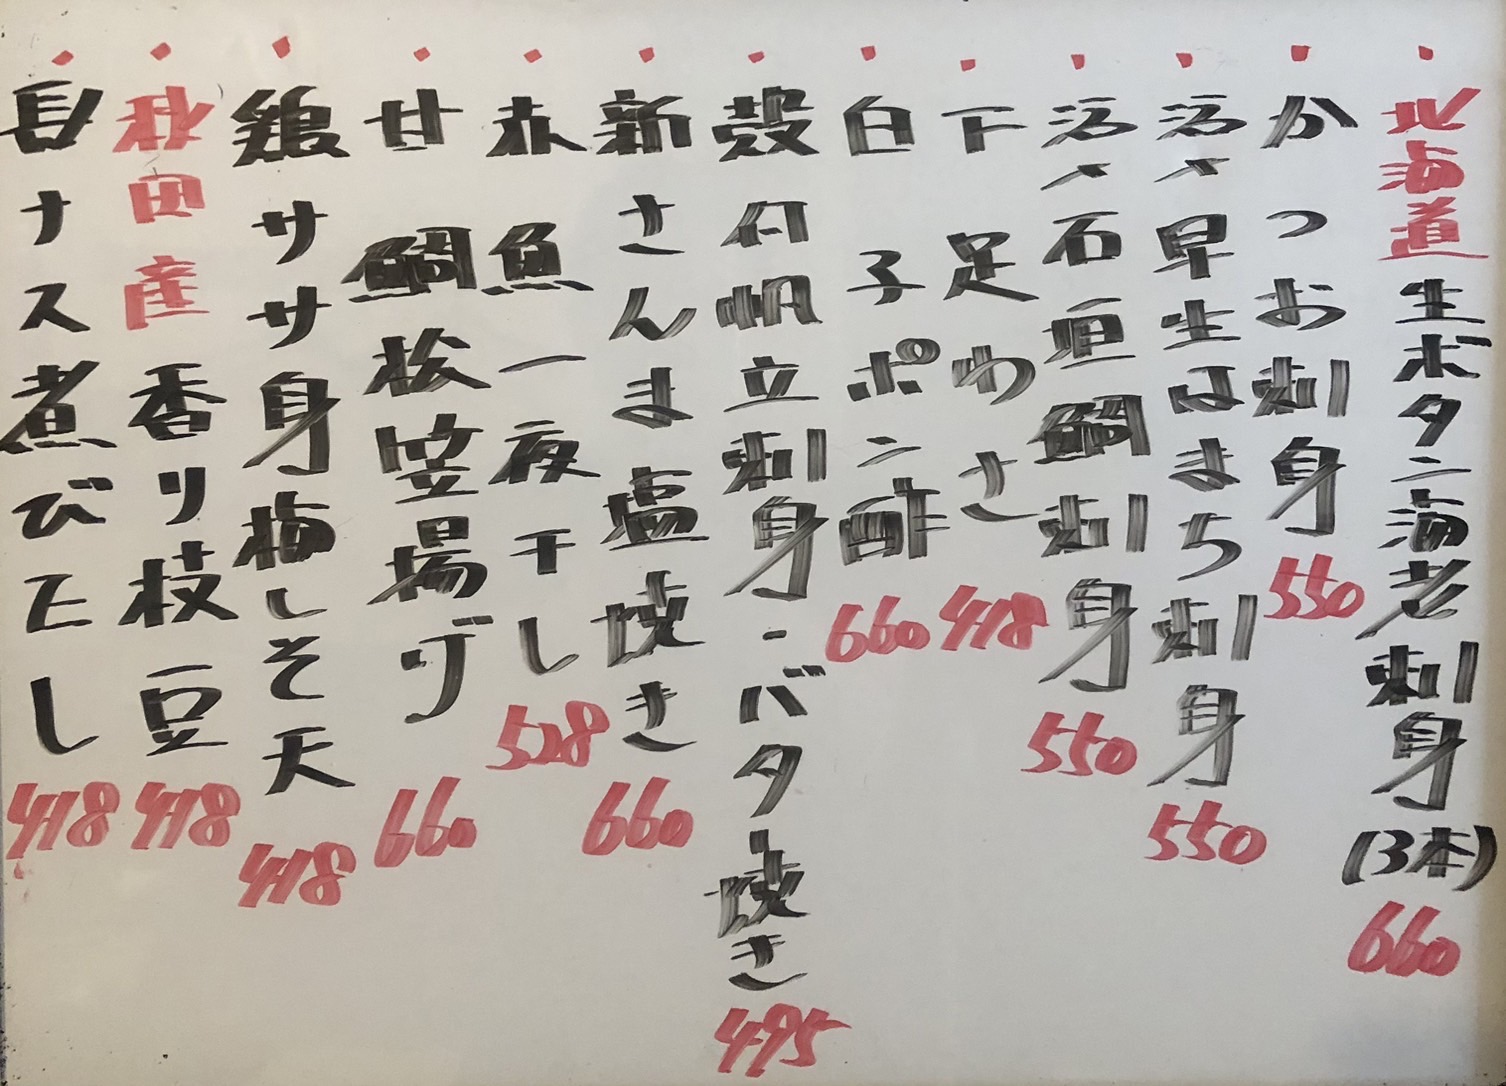 北海道生ボタン海老刺身(3本) 660
かつお刺身 550
活〆早生はまち刺身 550
活〆石垣鯛刺身 550
下足わさ 418
白子ポン酢 660
殻付帆立刺身・バター焼き 495
新さんま塩焼き 660
赤魚一夜干し 528
甘鯛松笠揚げ 660
鶏ササ身梅しそ天 418
秋田産香り枝豆 418
長ナス煮びたし 418